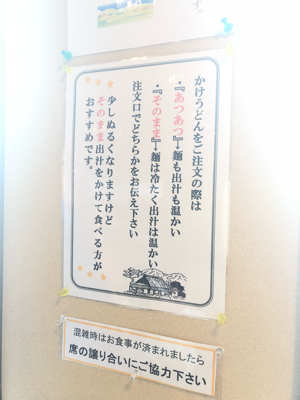 かけうどんをご注文の際は
・『あつあつ』→麺も出汁も温かい
・『そのまま』→麺は冷たく出汁は温かい
注文口でどちらかをお伝え下さい
少しぬるくなりますけど
そのまま出汁をかけて食べる方が
おすすめです。
混雑時はお食事が済まれましたら
席の譲り合いにご協力下さい